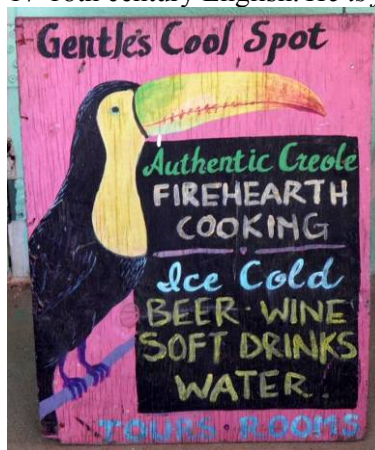 18th century English. He
Gentle's Cool Spot
Authentic Creole
FIREHEARTH
COOKING
Ice Cold
BEER · WINE
SOFT DRINKS
WATER.
TOURS · ROOMS